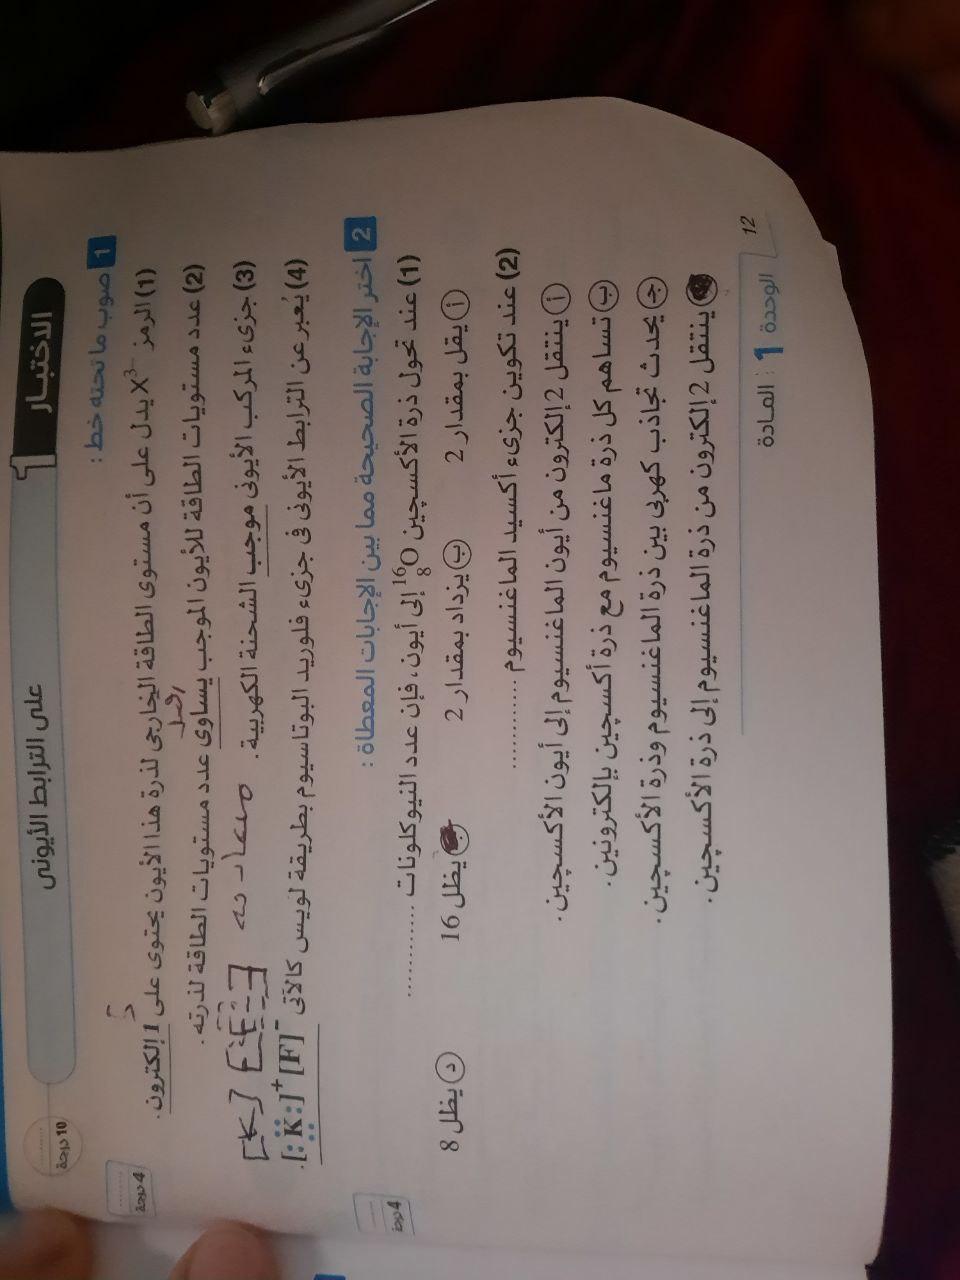 الاختبار 1 على الترابط الأيونى
10 درجة
1 صوب ما تحته خط :
4 درجة
(1) الرمز X³⁻ يدل على أن مستوى الطاقة الخارجى لذرة هذا الأيون يحتوى على 1 إلكترون.
(2) عدد مستويات الطاقة للأيون الموجب يساوى عدد مستويات الطاقة لذرته.
(3) جزىء المركب الأيونى موجب الشحنة الكهربية.
(4) يُعبر عن الترابط الأيونى فى جزىء فلوريد البوتاسيوم بطريقة لويس كالآتى [:K:]⁺[F]⁻.
[K]
2 اختر الإجابة الصحيحة مما بين الإجابات المعطاة :
4 درجة
(1) عند تحول ذرة الأكسچين ¹⁶₈O إلى أيون، فإن عدد النيوكلونات ............
أ يقل بمقدار 2
ب يزداد بمقدار 2
يظل 16
د يظل 8
(2) عند تكوين جزىء أكسيد الماغنسيوم ............
أ ينتقل 2 إلكترون من أيون الماغنسيوم إلى أيون الأكسچين.
ب تساهم كل ذرة ماغنسيوم مع ذرة أكسچين بإلكترونين.
ج يحدث تجاذب كهربى بين ذرة الماغنسيوم وذرة الأكسچين.
ينتقل 2 إلكترون من ذرة الماغنسيوم إلى ذرة الأكسچين.
12 الوحدة 1 : المادة